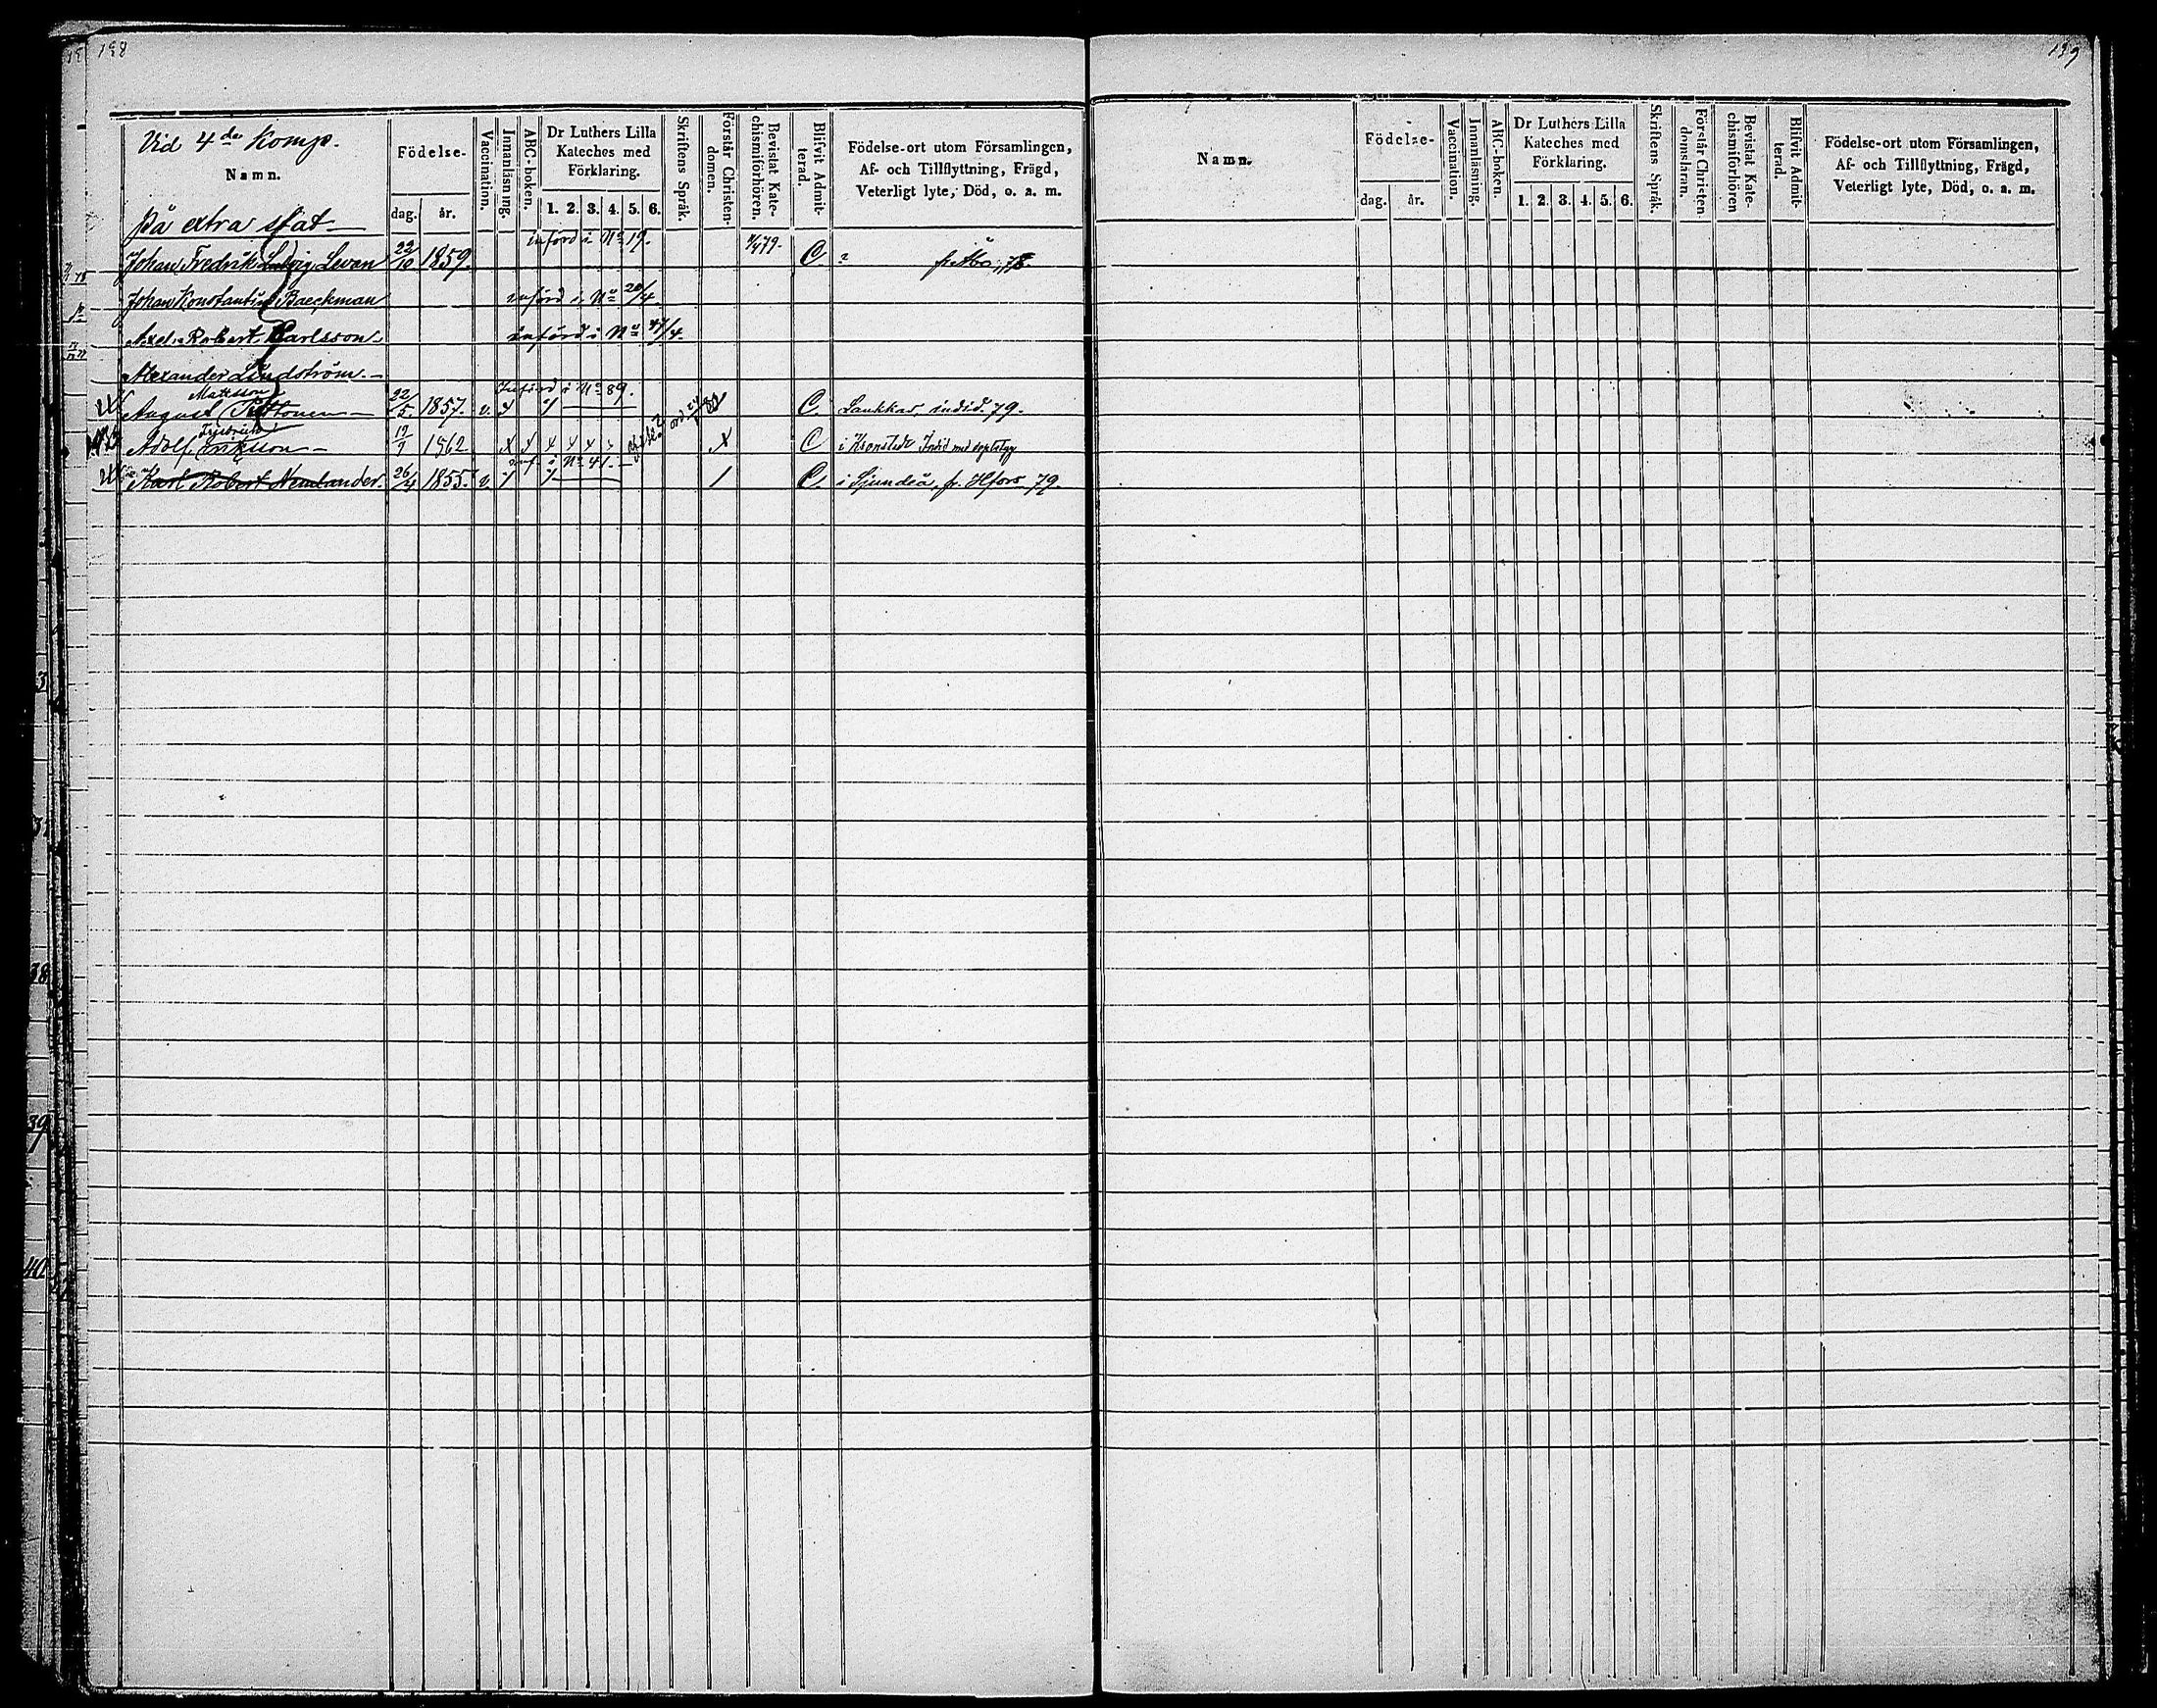 138
139
Vid 4de Komp.
Namn.
Födelse-
dag. år.
Vaccination.
Innanläsning.
ABC-boken.
Dr Luthers Lilla
Kateches med
Förklaring.
1. 2. 3. 4. 5. 6.
Skriftens Språk.
Förstår Christen-
domen.
Bevistat Kate-
chismiförhören.
Blifvit Admit-
terad.
Födelse-ort utom Församlingen,
Af- och Tillflyttning, Frägd,
Veterligt lyte, Död, o. a. m.
På extra stat
införd i No 19.
Johan Fredrik Ludvig Levan 22/10 1859. 79. C. ? fr. Åbo 78.
Johan Konstantin Baeckman införd i No 20/4.
Axel Robert Karlsson införd i No 47/4.
Alexander Lindström.
Införd i No 89.
Mattsson
August 22/5 1857. v. C. 79.
Adolf Eriksson 19/9 1862 x C i Kronstadt
inf. i No 41.
Karl Robert Nemlander. 26/4 1855. v. C. i Sjundeå, fr. Hfors 79.
Namn.
Födelse-
dag. år.
Vaccination.
Innanläsning.
ABC-boken.
Dr Luthers Lilla
Kateches med
Förklaring.
1. 2. 3. 4. 5. 6.
Skriftens Språk.
Förstår Christen-
domsläran.
Bevistat Kate-
chismiförhören
Blifvit Admit-
terad.
Födelse-ort utom Församlingen,
Af- och Tillflyttning, Frägd,
Veterligt lyte, Död, o. a. m.
38
39
40